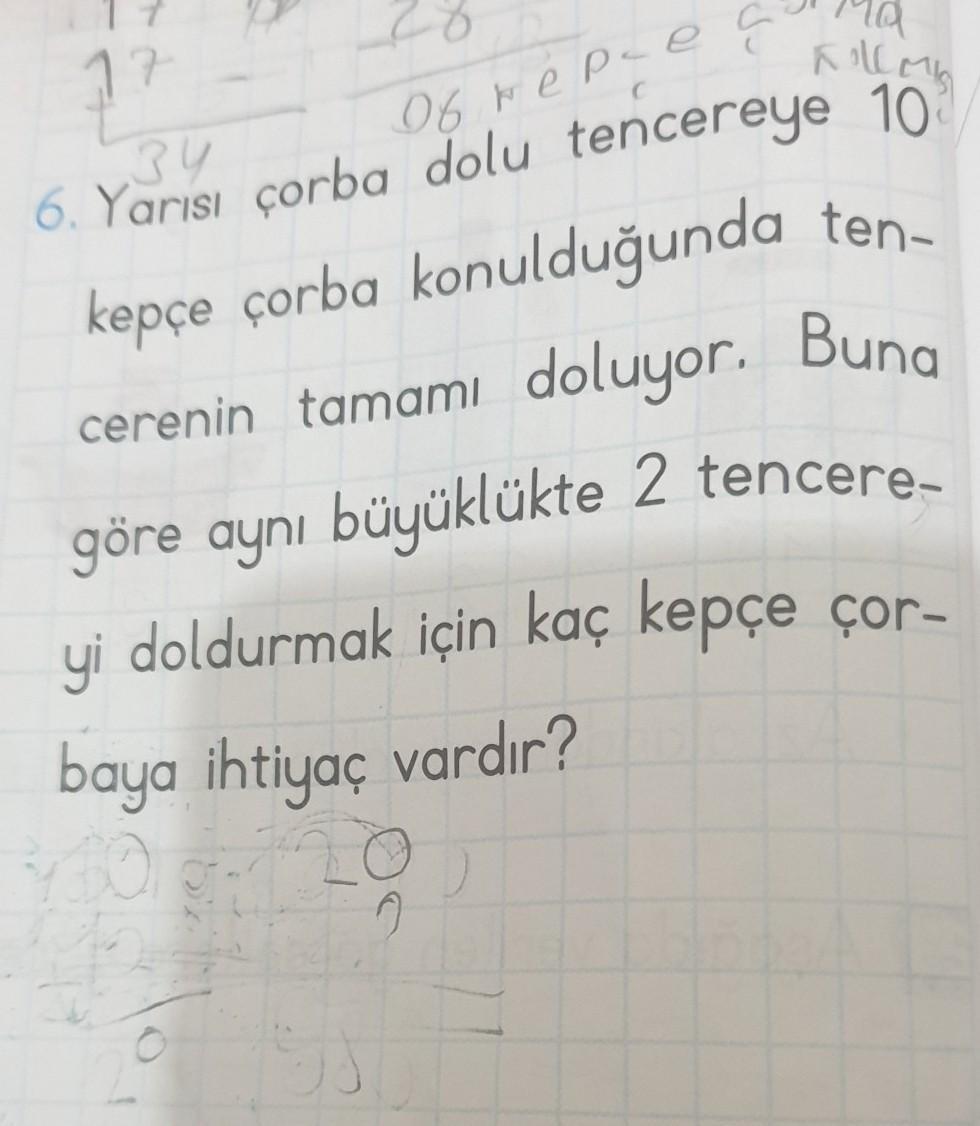 17
17 - 28
06 kepçe
34
6. Yarısı çorba dolu tencereye 10
kepçe çorba konulduğunda ten-
cerenin tamamı doluyor. Buna
göre aynı büyüklükte 2 tencere-
yi doldurmak için kaç kepçe çor-
baya ihtiyaç vardır?
20